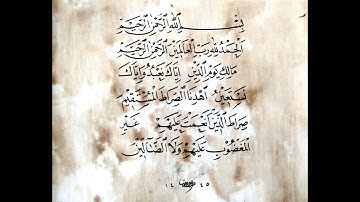 بِسْمِ اللهِ الرَّحْمٰنِ الرَّحِيْمِ
الْحَمْدُ لِلّٰهِ رَبِّ الْعَالَمِيْنَ الرَّحْمٰنِ الرَّحِيْمِ
مَالِكِ يَوْمِ الدِّيْنِ إِيَّاكَ نَعْبُدُ وَإِيَّاكَ
نَسْتَعِيْنُ اهْدِنَا الصِّرَاطَ الْمُسْتَقِيْمَ
صِرَاطَ الَّذِيْنَ أَنْعَمْتَ عَلَيْهِمْ غَيْرِ
الْمَغْضُوْبِ عَلَيْهِمْ وَلَا الضَّالِّيْنَ
١٤ ٤٥